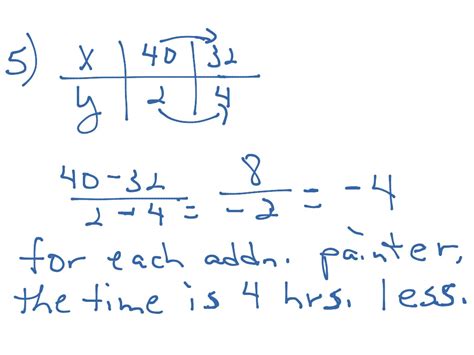 5) x | 40 | 32
y | 2 | 4
40-32 / 2-4 = 8 / -2 = -4
for each addn. painter,
the time is 4 hrs. less.